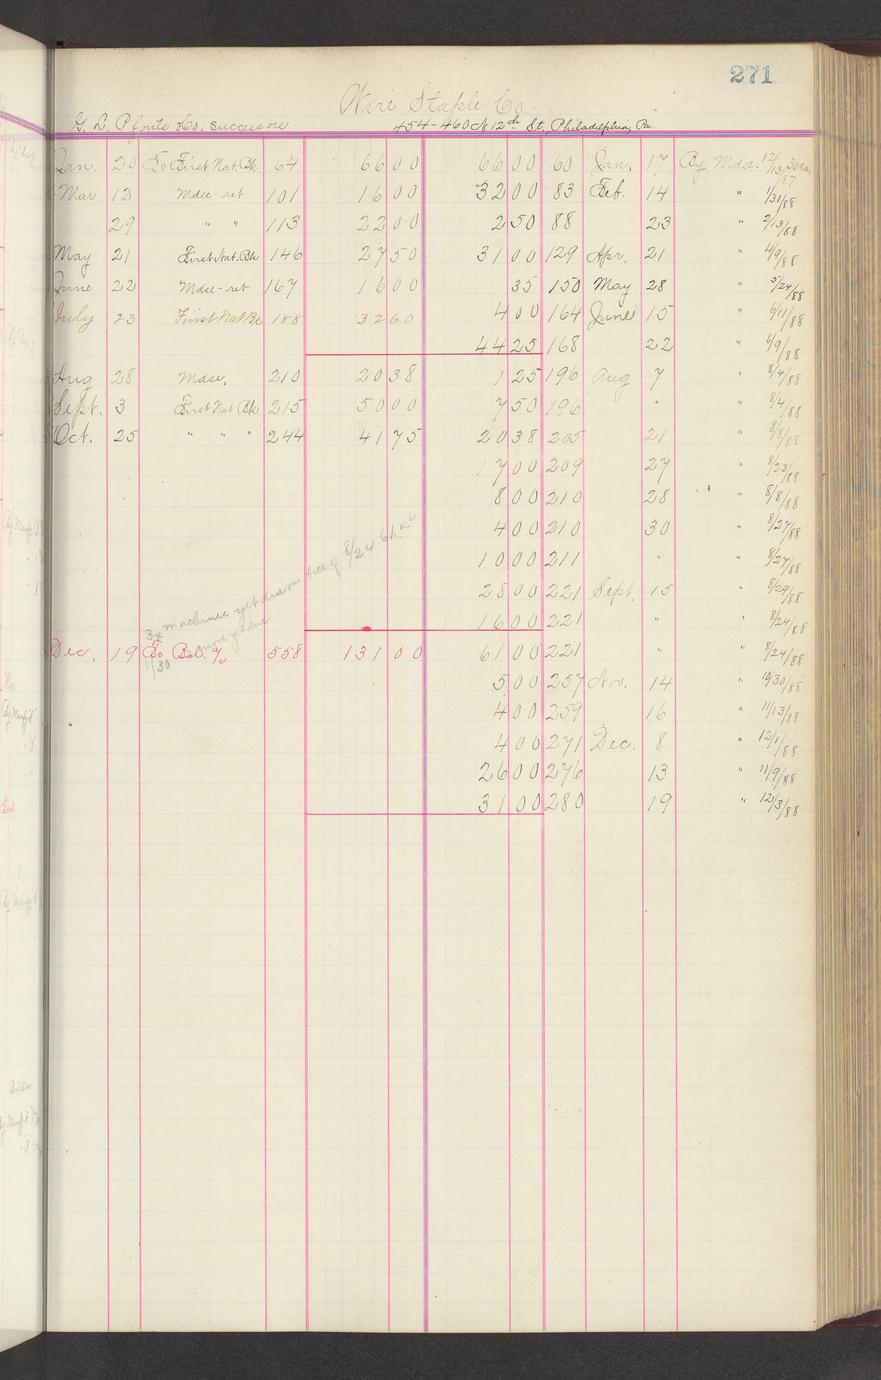 271
Wire Staple Co.
G. L. Pfouts Co. successors 454-460 N 12th St., Philadelphia, Pa.
Jan. 20 To First Nat. Bk 64 66 00 66 00 60 Jan. 17 By Mdse. 12/13/87 30 da.
Mar 13 Mdse-ret 101 16 00 32 00 83 Feb. 14 " 1/31/88
29 " " 113 22 00 2 50 88 23 " 2/13/88
May 21 First Nat. Bk 146 27 50 31 00 129 Apr. 21 " 4/9/88
June 22 Mdse-ret 167 16 00 35 150 May 28 " 5/24/88
July 23 First Nat Bk 188 32 60 4 00 164 June 15 " 6/11/88
44 25 168 22 " 6/9/88
Aug 28 Mdse. 210 20 38 1 25 196 Aug 7 " 8/4/88
Sept. 3 First Nat Bk 215 50 00 7 50 196 " " 8/4/88
Oct. 25 " " " 244 41 75 20 38 205 21 " 8/8/88
17 00 209 27 " 8/23/88
8 00 210 28 " 8/8/88
4 00 210 30 " 8/27/88
10 00 211 " " 8/27/88
28 00 221 Sept. 15 " 8/29/88
16 00 221 " " 8/24/88
3 machines yet due on bill of 8/24 61.00
Dec. 19 To Bal. % 558 131 00 61 00 221 " " 8/24/88
1/30
5 00 257 Nov. 14 " 10/30/88
4 00 259 16 " 11/13/88
4 00 271 Dec. 8 " 12/1/88
26 00 276 13 " 11/9/88
31 00 280 19 " 12/3/88